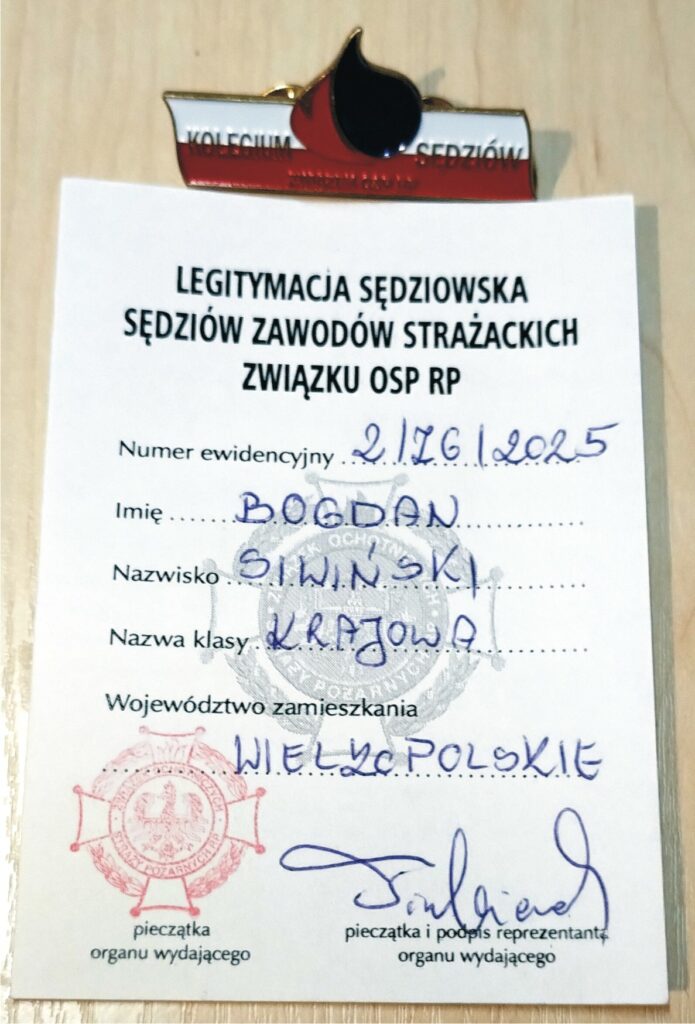 KOLEGIUM SĘDZIÓW
LEGITYMACJA SĘDZIOWSKA
SĘDZIÓW ZAWODÓW STRAŻACKICH
ZWIĄZKU OSP RP
Numer ewidencyjny 2/76/2025
Imię BOGDAN
Nazwisko SIWIŃSKI
Nazwa klasy KRAJOWA
Województwo zamieszkania
WIELKOPOLSKIE
pieczątka
organu wydającego
pieczątka i podpis reprezentanta
organu wydającego